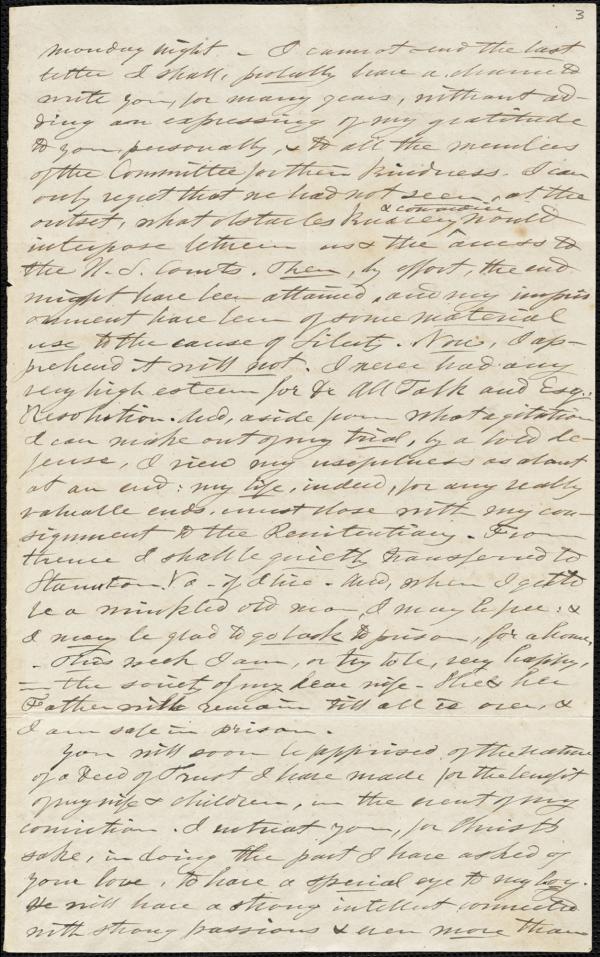 3
Monday night - I cannot end the last
letter I shall, probably have a chance to
write you, for many years, without ad-
ding an expressing of my gratitude
to you personally, & to all the members
of the Committee for their kindness. I can
only regret that we had not seen, at the
outset, what obstacles & connivance would
interpose between us & the access to
the U. S. Courts. Then, by effort, the end
might have been attained, and my impris
onment have been of some material
use to the cause of Liberty. Now, I ap-
prehend it will not. I never had any
very high esteem for Dr All Talk and Esq.
Resolution. And, aside from what agitation
I can make out of my trial, by a bold de-
fense, I view my usefulness as about
at an end: my life, indeed, for any really
valuable ends, must close with my con-
signment to the Penitentiary. From
thence I shall be quietly transferred to
Staunton Va - if alive - And, when I get to
be a wrinkled old man, I may be free: &
I may be glad to go back to prison, for a home.
- This week I am, or try to be, very happy,
= the society of my dear wife - She & her
Father will remain till all is over, &
I am safe in prison.
You will soon be apprised of the nature
of a Deed of Trust I have made for the benefit
of my wife & children, in the event of my
conviction. I intreat you, for Christ's
sake, in doing the part I have asked of
your love, to have a special eye to my boy.
He will have a strong intellect connected
with strong passions & even more than